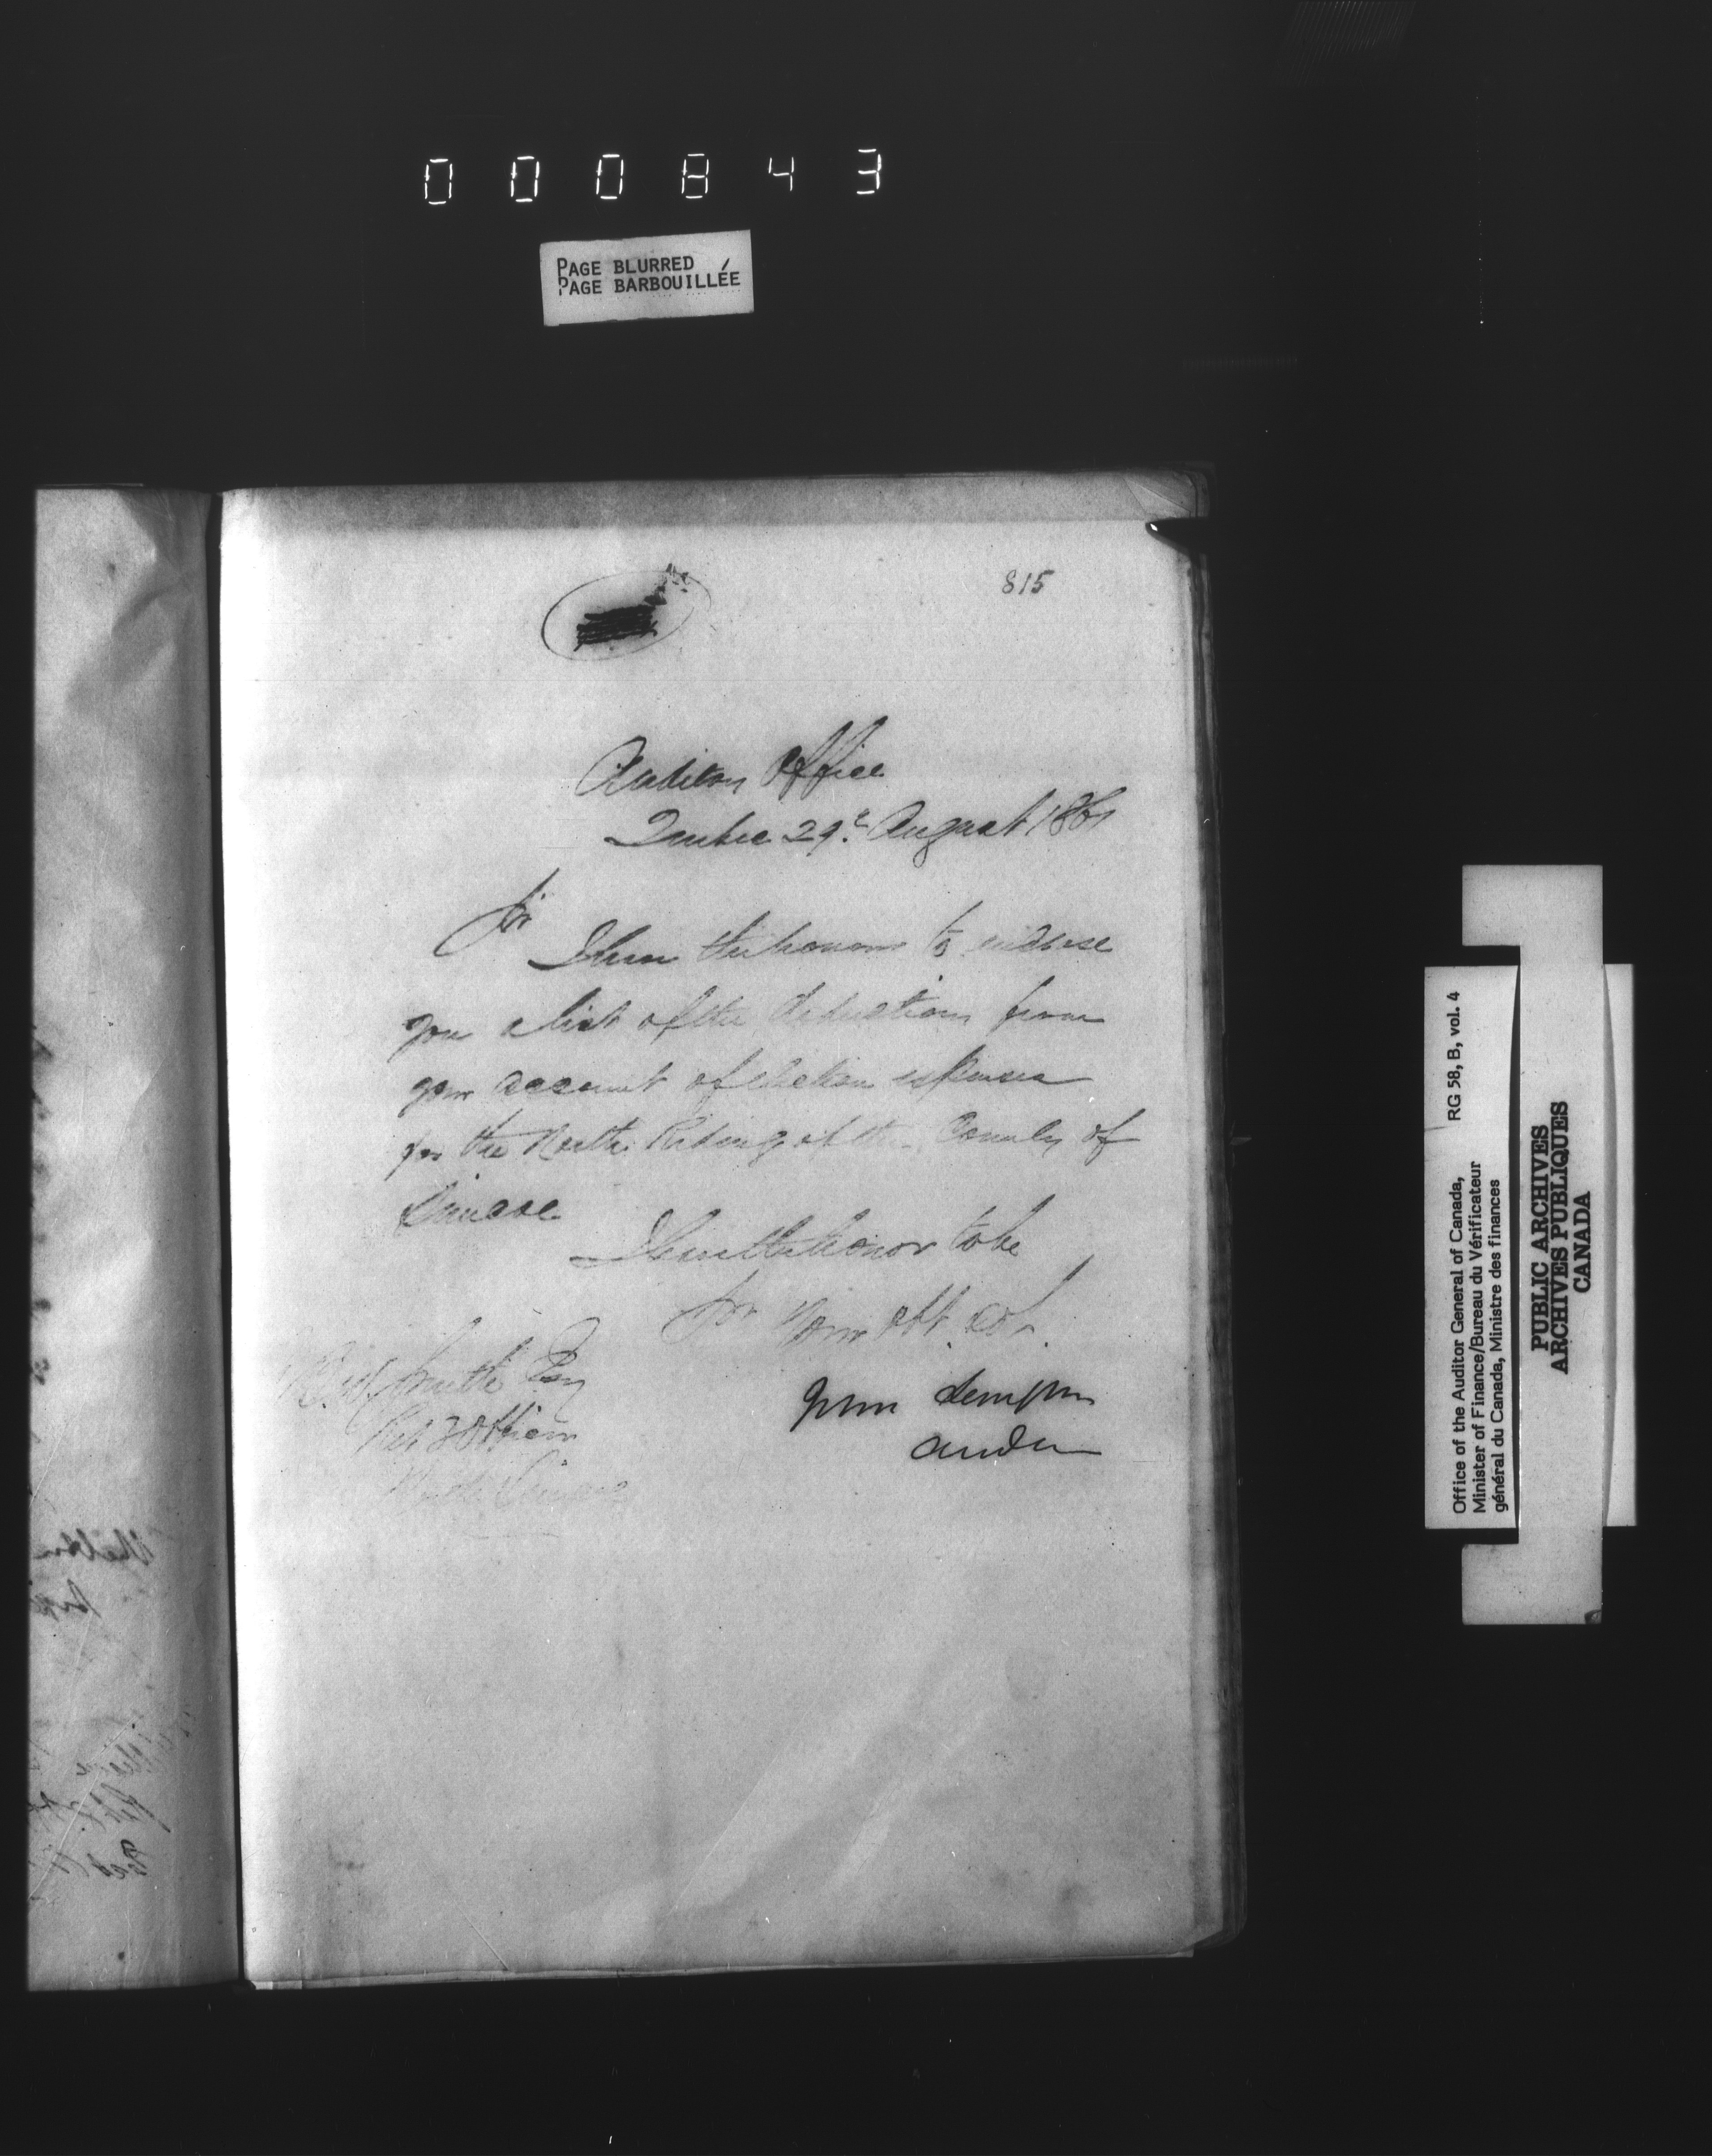 000843
PAGE BLURRED
PAGE BARBOUILLÉE
815
Auditors Office
Quebec 29th August 1861
Sir
I have the honour to enclose
you a list of the deductions from
your account of election expenses
for the North Riding of the County of
Simcoe
I have the honor to be
Sir Your obt. Sert.
John Langton
Auditor
Smith Esq
Ret'g Officer
North Simcoe
Office of the Auditor General of Canada, RG 58, B, vol. 4
Minister of Finance/Bureau du Vérificateur
général du Canada, Ministre des finances
PUBLIC ARCHIVES
ARCHIVES PUBLIQUES
CANADA